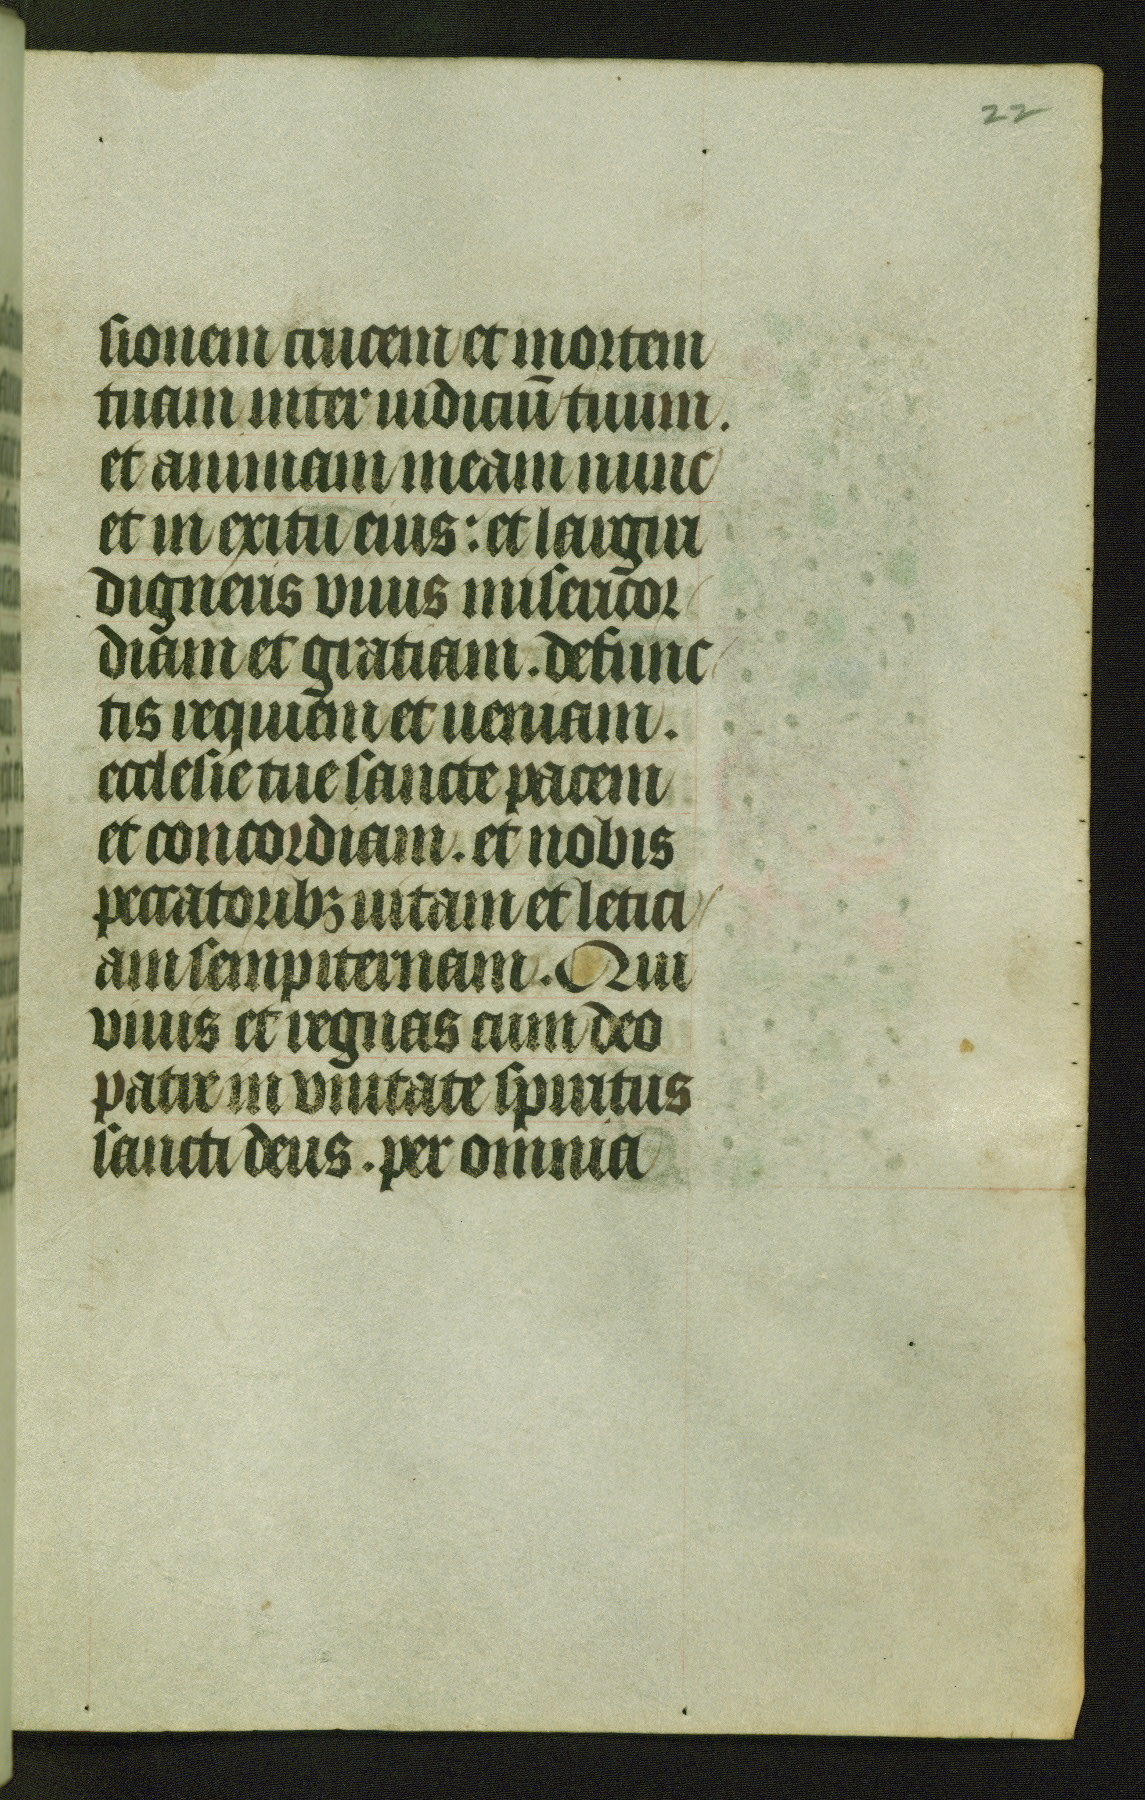 22
sionem crucem et mortem
tuam inter iudiciū tuum.
et animam meam nunc
et in exitu eius: et largiri
digneris viuis misericor
diam et gratiam. defunc
tis requiem et ueniam.
ecclesie tue sancte pacem
et concordiam. et nobis
peccatoribꝫ uitam et letici
am sempiternam. Qui
viuis et regnas cum deo
patre in vnitate spiritus
sancti deus. per omnia